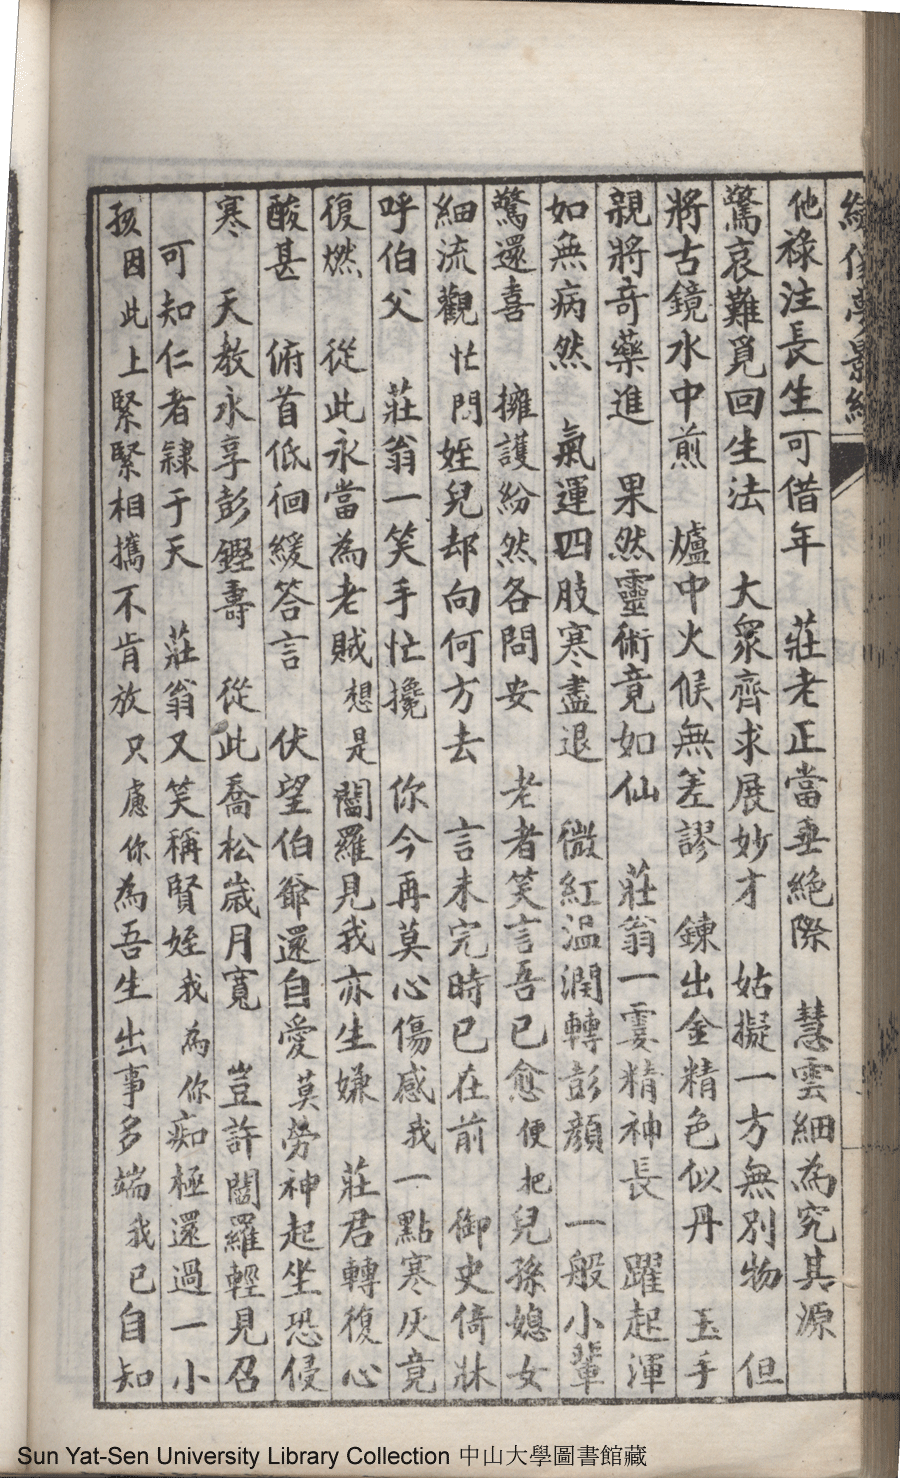 他祿注長生可借年　莊老正當垂絶際　慧雲細為究其源
驚哀難覓回生法　大衆齊求展妙才　姑擬一方無別物　但
將古鏡水中煎　爐中火候無差謬　鍊出金精色似丹　玉手
親將奇藥進　果然靈術竟如仙　莊翁一霎精神長　躍起渾
如無病然　氣運四肢寒盡退　微紅温潤轉彭顔　一般小輩
驚還喜　擁護紛然各問安　老者笑言吾已愈便把兒孫媳女
細流觀忙問姪兒却向何方去　言未完時已在前　御史倚牀
呼伯父　莊翁一笑手忙攙　你今再莫心傷感我一點寒灰竟
復燃　從此永當為老賊想是閻羅見我亦生嫌　莊君轉復心
酸甚　俯首低徊緩答言　伏望伯爺還自愛莫勞神起坐恐侵
寒　天教永享彭鏗壽　從此喬松歲月寬　豈許閻羅輕見召
可知仁者隷于天　莊翁又笑稱賢姪我為你痴極還過一小
孩因此上緊緊相攜不肯放只慮你為吾生出事多端我已自知
Sun Yat-Sen University Library Collection 中山大學圖書館藏